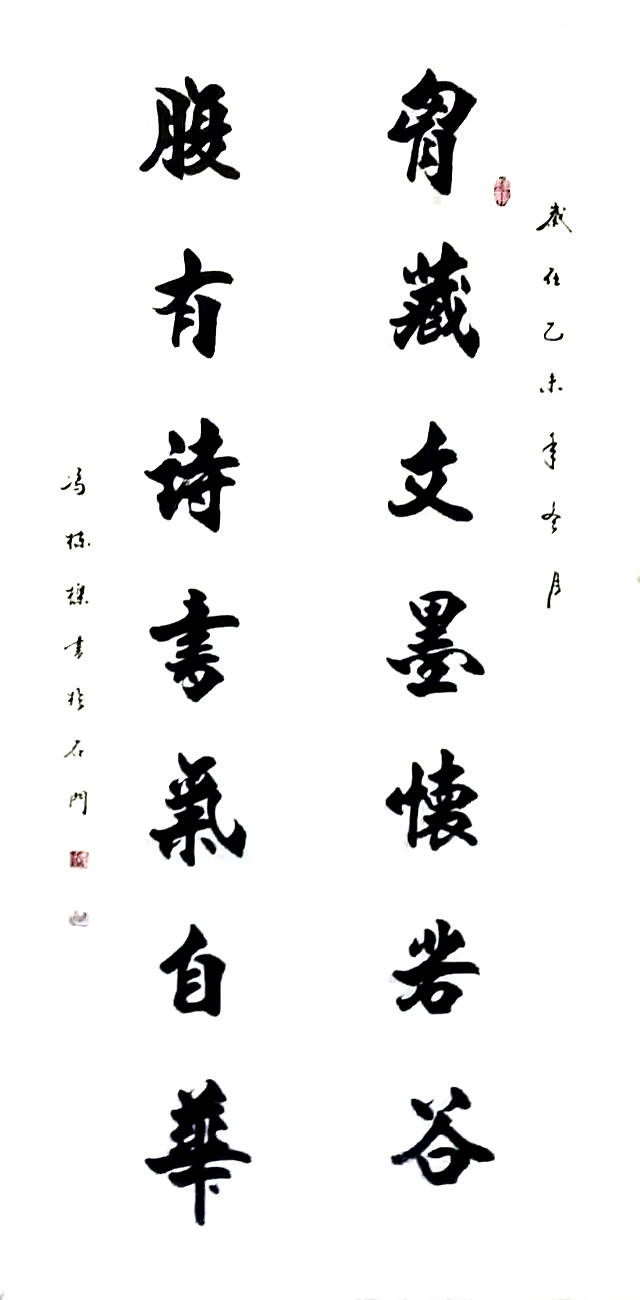 歲在乙未年冬月
胷藏文墨懷若谷
腹有詩書氣自華
冯栋樑書於石門